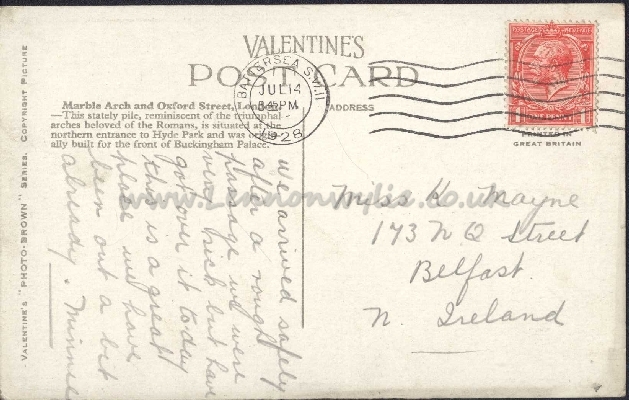 VALENTINE'S
POST CARD
Marble Arch and Oxford Street, London.
—This stately pile, reminiscent of the triumphal
arches beloved of the Romans, is situated at the
northern entrance to Hyde Park and was origin-
ally built for the front of Buckingham Palace.
ADDRESS
BATTERSEA S.W.11
JUL 14
PM
1928
POSTAGE
PRINTED IN
GREAT BRITAIN
VALENTINE'S "PHOTO-BROWN" SERIES. COPYRIGHT PICTURE
we arrived safely
after a rough
passage we were
very sick but have
got over it today
this is a great
place we have
been out a bit
already. Minnie
Miss K Mayne
173 N Q Street
Belfast
N. Ireland
www.Londonwylie.co.uk